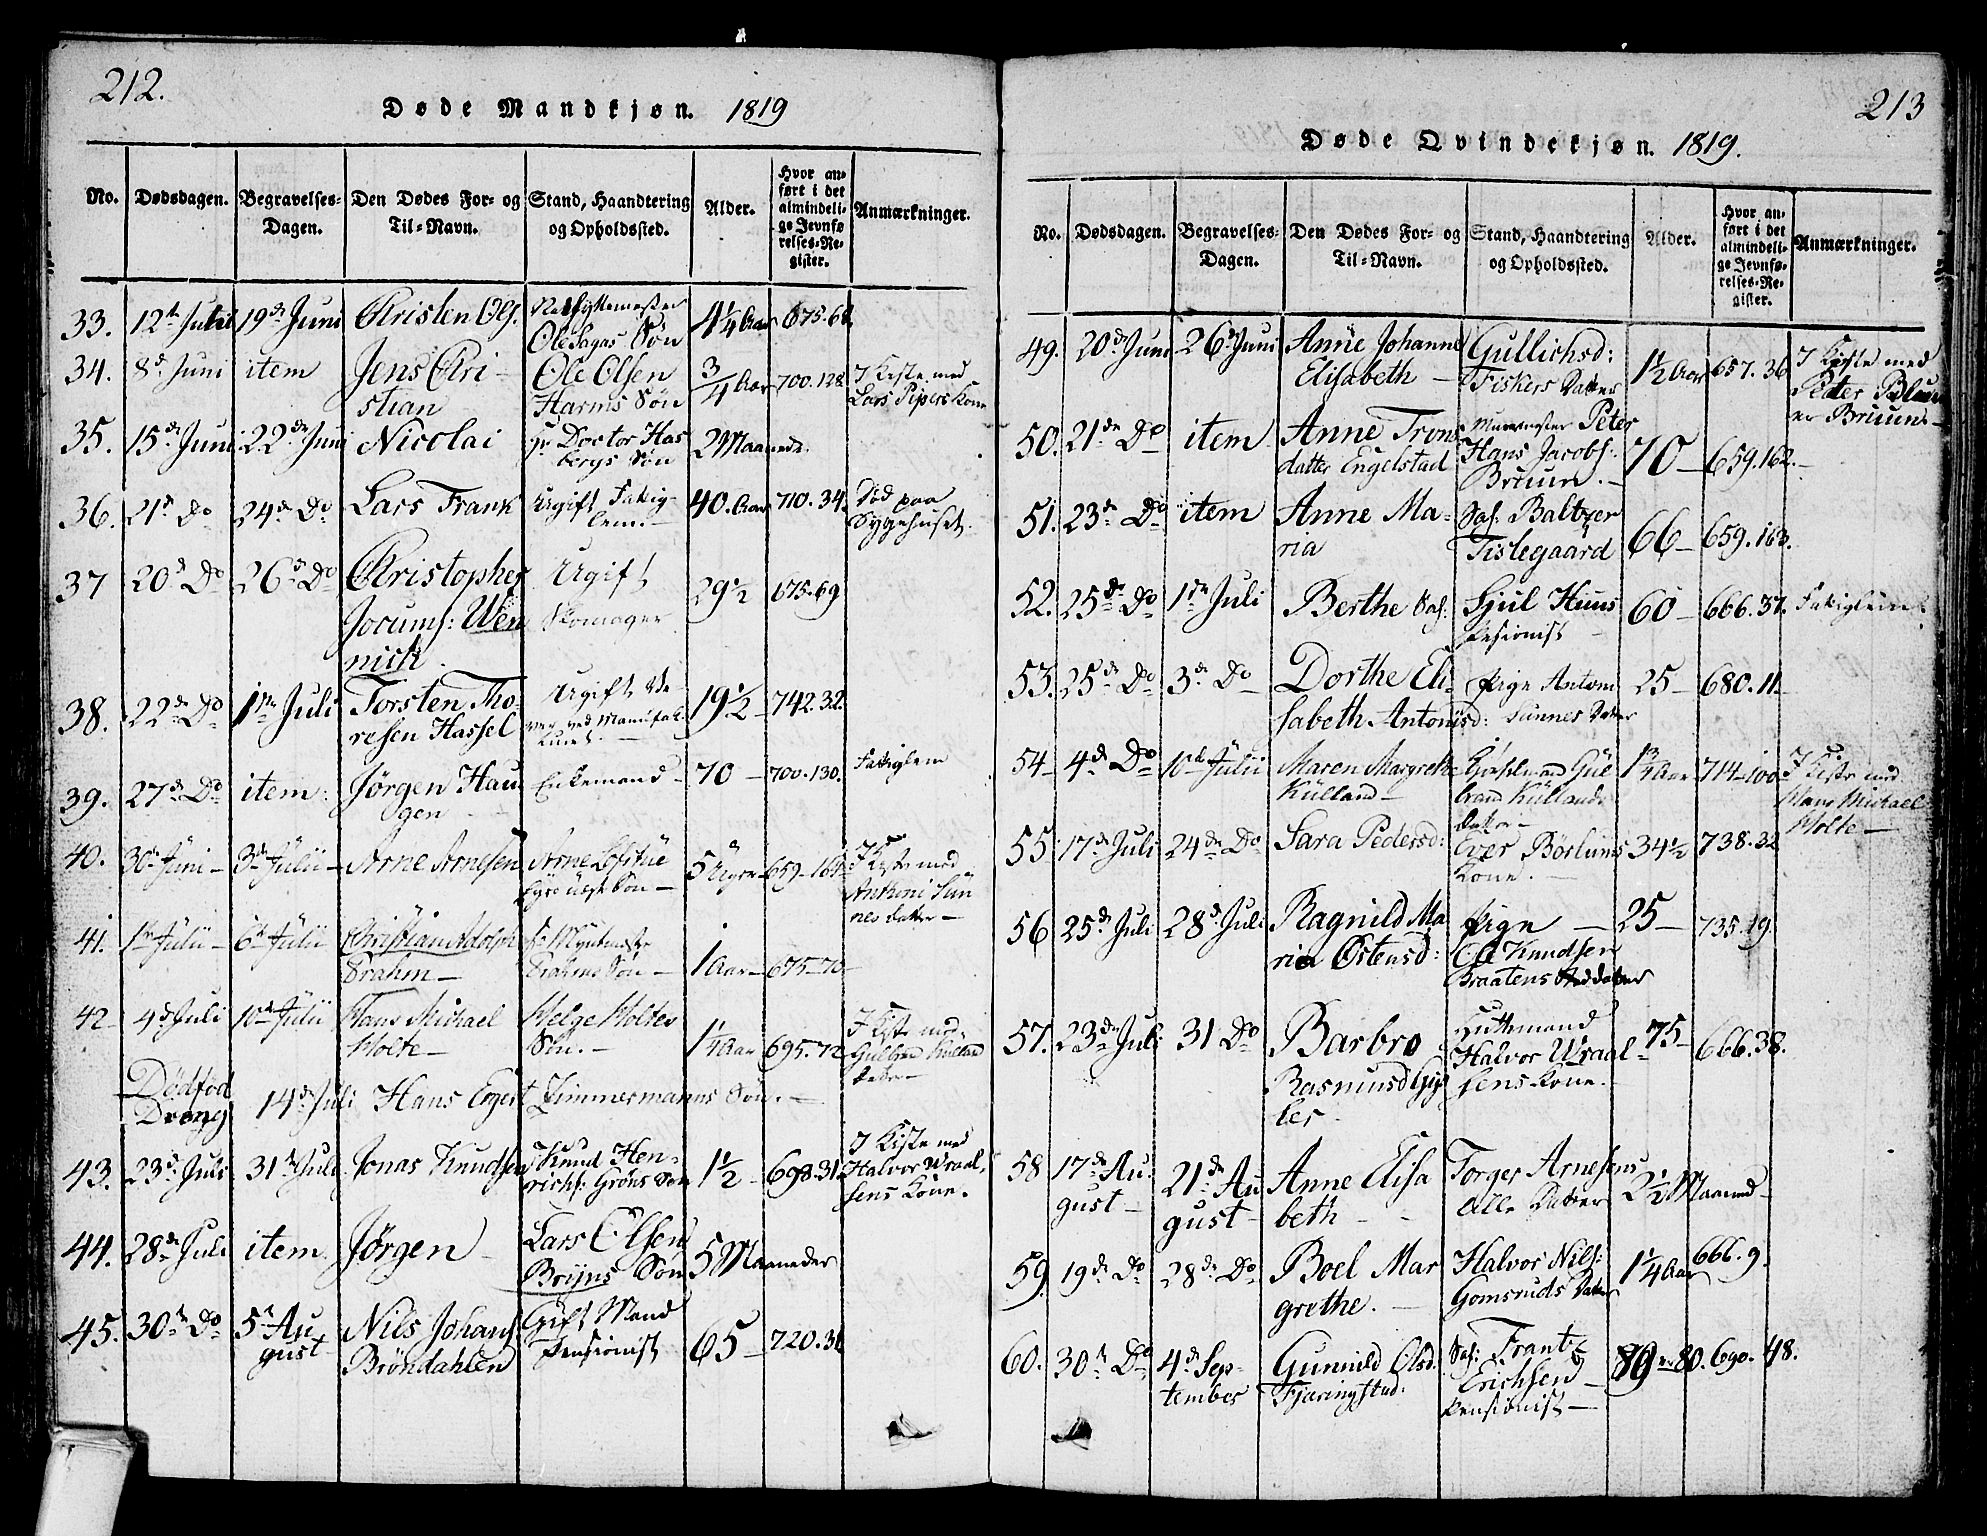 212.
Døde Mandkjøn. 1819
No. Dødsdagen. Begravelses-Dagen. Den Dødes For- og Til-Navn. Stand, Haandtering og Opholdssted. Alder. Hvor anført i det almindelige Jevnførelses-Register. Anmærkninger.
33. 12te Juni 19de Juni Christen Ols. Ole Sagas Søn 4 1/4 Aar 675. 68
34. 8de Juni item Jens Christian Ole Olsen Harms Søn 3/4 Aar 700. 128 I Kiste med Lars Pipers Kone
35. 15de Juni 22de Juni Nicolai Hr Doctor Hasbergs Søn 2 Maaneder
36. 21de Do 24de Do Lars Frank Ugift Fattiglem. 40. Aar 710. 34. Død paa Sygehuset.
37 20de Do 26de Do Christopher Jocums: Wennich. Ugift Skomager 29 1/2 675. 69
38. 22de Do 1ste Juli Torsten Thoresen Hassel Ugift 19 1/2 742. 32.
39. 27de Do item Jørgen Haugen Enkemand 70 700. 130. Fattiglem
40. 30te Juni 3de Julii Arne Arnesen Arne Søn 5 Uger 659 I Kiste med
41. 1ste Julii 6te Julii Christian Adolph Brahm Hr Myntmester Brahms Søn 1 Aar 675-70
42 4de Juli 10de Julii Hans Michael Holte Helge Holtes Søn. 1 1/4 Aar 695. 72 I Kiste med Gulbrand Külland datter
Dödfød Dreng 14de Juli Hans Engert Zimmermanns Søn.
43. 23de Juli 31te Juli Jonas Knudsen Knud Henrichs: Gröns Søn 1 1/2 698. 31 I Kiste med Halvor Wraalsens Kone.
44. 28de Juli item Jørgen Lars Olsen Bryns Søn 5 Maaneder
45. 30te Do 5te August Nils Johans: Bröndahlen Gift Mand Pensionist 65 720. 31
213
Døde Qvindekjøn. 1819.
No. Dødsdagen. Begravelses-Dagen. Den Dødes For- og Til-Navn. Stand, Haandtering og Opholdssted. Alder. Hvor anført i det almindelige Jevnførelses-Register. Anmærkninger.
49. 20de Juni 26de Juni Anne Johanne Elisabeth Gullichsd: Fiskers Datter 1 1/2 Aar 657. 36 I Kiste med Peter Bruun
50. 21de Do item Anne Tronsdatter Engelstad Murmester Peter Hans Jacobs: Bruun. 70 659. 162.
51. 23de Do item Anne Maria Sal: Baltzer Tislegaard 66 659. 163.
52. 25de Do 1ste Juli Berthe Sal: Sjul Huus Pesionist 60 666. 37. Fattiglem
53. 25de Do 3de Do Dorthe Elisabeth Antonisd: Pige Antoni Sünnes Datter 25 680. 11
54 4de Do 10de Julii Maren Margrethe Külland Gulbrand Küllands Datter 1 3/4 Aar 714-100 I Kiste med Hans Michael Holte
55 17de Juli 24de Do Sara Pedersd: Ever Börlunds Kone. 34 1/2 738. 32
56 25de Juli 28de Juli Ragnild Maria Østensd: Pige Ole Knudsen Braatens Steddatter 25 735. 19.
57. 23de Juli 31 Do Barbro Rasmusd Hyttemand Halvor Wraalsens Kone. 75 666. 38.
58 17de August 21de August Anne Elisabeth Torger Arnesens Datter 2 1/2 Maaned
59. 19de Do 28de Do Boel Margrethe. Halvor Nils: Gomsruds Datter 1 1/4 Aar 666. 9.
60. 30te Do 4de September Gunnild Olsd: Fjæringstad: Sal: Frantz Erichsen Pensionist 80. 690. 48.